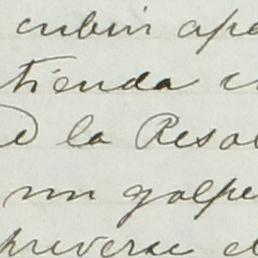 cubrir apa
tienda
de la Resol
un golpe
preverse el